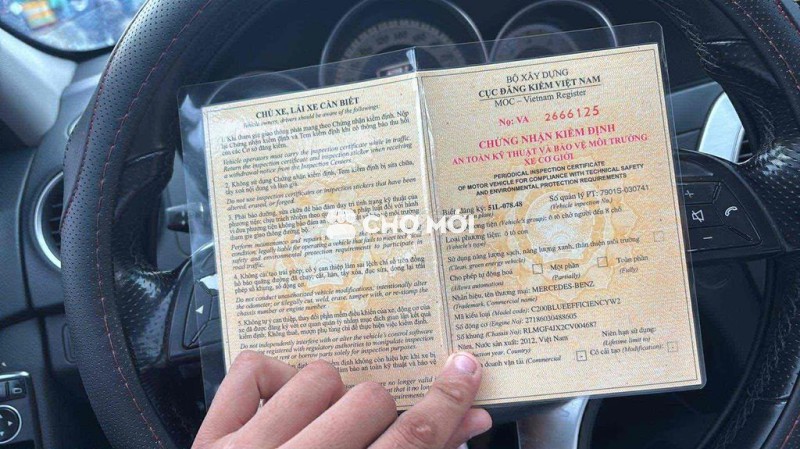 CHỦ XE, LÁI XE CẦN BIẾT
Vehicle owners, drivers should be aware of the followings:
1. Khi tham gia giao thông phải mang theo Chứng nhận kiểm định. Nộp
lại Chứng nhận kiểm định và Tem kiểm định khi có thông báo thu hồi
của các Cơ sở đăng kiểm.
Vehicle operators must carry the inspection certificate while in traffic.
Return the inspection certificate and inspection sticker when receiving
a withdrawal notice from the Inspection Center.
2. Không sử dụng Chứng nhận kiểm định, Tem kiểm định bị sửa chữa,
tẩy xoá nội dung và làm giả.
Do not use inspection certificates or inspection stickers that have been
altered, erased, or forged.
3. Phải bảo dưỡng, sửa chữa để bảo đảm duy trì tình trạng kỹ thuật của
tham gia giao thông đường bộ.
Perform maintenance and repairs to
safety and environmental protection requirements to participate in
road traffic.
4. Không cải tạo trái phép; cố ý can thiệp làm sai lệch chỉ số trên đồng
hồ báo quãng đường đã chạy; cắt, hàn, tẩy xóa, đục sửa, đóng lại trái
phép số khung, số động cơ.
Do not conduct unauthorized vehicle modifications; intentionally alter
the odometer; or illegally cut, weld, erase, tamper with, or re-stamp the
chassis number or engine number.
5. Không tự ý can thiệp, thay đổi phần mềm điều khiển của xe, động cơ của xe
Do not independently interfere with or alter the vehicle's control software
registered with regulatory authorities to manipulate inspection
or borrow parts solely for inspection purposes.
định không còn hiệu lực khi xe bị
are no longer valid
BỘ XÂY DỰNG
CỤC ĐĂNG KIỂM VIỆT NAM
MOC – Vietnam Register
Nọ: VA 2666125
CHỨNG NHẬN KIỂM ĐỊNH
AN TOÀN KỸ THUẬT VÀ BẢO VỆ MÔI TRƯỜNG
XE CƠ GIỚI
PERIODICAL INSPECTION CERTIFICATE
OF MOTOR VEHICLE FOR COMPLIANCE WITH TECHNICAL SAFETY
AND ENVIRONMENTAL PROTECTION REQUIREMENTS
đăng ký: 51L-078.48 Số quản lý PT: 7901S-030741
(Vehicle Inspection No.)
phương tiện (Vehicle's group): ô tô chở người đến 8 chỗ
Loại phương tiện: ô tô con
(Vehicle's type)
Sử dụng năng lượng sạch, năng lượng xanh, thân thiện môi trường
(Clean, green energy vehicle)
Cho phép tự động hoá Một phần Toàn phần
(Allows automation) (Partially) (Fully)
Nhãn hiệu, tên thương mại: MERCEDES-BENZ
(Trademark, Commercial name)
Mã kiểu loại (Model code): C200BLUEEFFICIENCYW2
Số động cơ (Engine No): 27186030488605
Số khung (Chassis No): RLMGF4IX2CV004687
Năm, Nước sản xuất: 2012, Việt Nam Niên hạn sử dụng:
year, Country) (Lifetime limit to)
doanh vận tải (Commercial Có cải tạo (Modification):
CHỢ MỚI